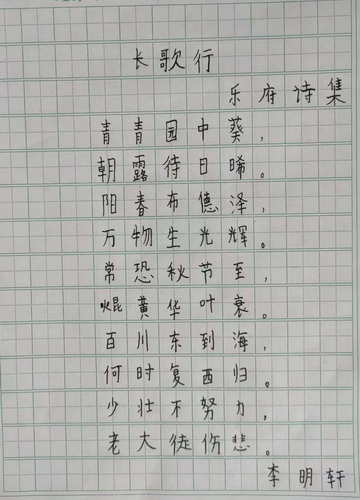 长歌行
乐府诗集
青青园中葵，
朝露待日晞。
阳春布德泽，
万物生光辉。
常恐秋节至，
焜黄华叶衰。
百川东到海，
何时复西归。
少壮不努力，
老大徒伤悲。
李明轩